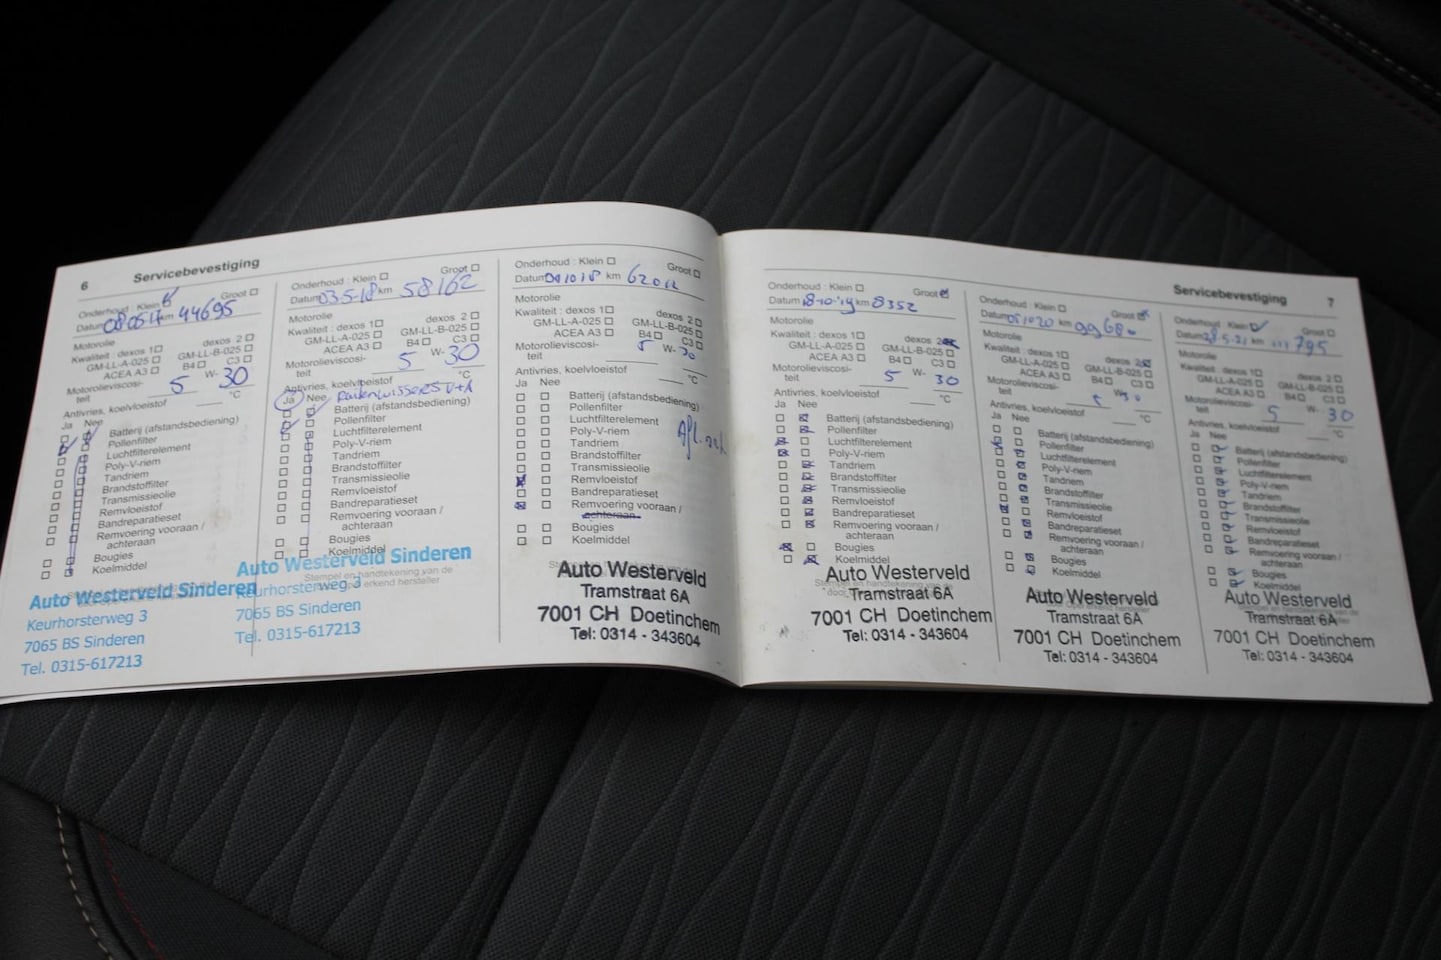 6
Servicebevestiging
Onderhoud : Klein
Groot
Datum 08 05 17 km 44695
Motorolie
Kwaliteit : dexos 1 dexos 2
GM-LL-A-025 GM-LL-B-025
ACEA A3 B4 C3
Motorolieviscosi-
teit 5 W- 30
Antivries, koelvloeistof °C
Ja Nee
Batterij (afstandsbediening)
Pollenfilter
Luchtfilterelement
Poly-V-riem
Tandriem
Brandstoffilter
Transmissieolie
Remvloeistof
Bandreparatieset
Remvoering vooraan /
achteraan
Bougies
Koelmiddel
Auto Westerveld Sinderen
Keurhorsterweg 3
7065 BS Sinderen
Tel. 0315-617213
Onderhoud : Klein Groot
Datum 03-5-18 km 58162
Motorolie
Kwaliteit : dexos 1 dexos 2
GM-LL-A-025 GM-LL-B-025
ACEA A3 B4 C3
Motorolieviscosi-
teit 5 W- 30
Antivries, koelvloeistof °C
Ja Nee Ruitenwissers V+A
Batterij (afstandsbediening)
Pollenfilter
Luchtfilterelement
Poly-V-riem
Tandriem
Brandstoffilter
Transmissieolie
Remvloeistof
Bandreparatieset
Remvoering vooraan /
achteraan
Bougies
Koelmiddel
Stempel en handtekening van de
erkend hersteller
Auto Westerveld Sinderen
Keurhorsterweg 3
7065 BS Sinderen
Tel. 0315-617213
Onderhoud : Klein Groot
Datum km
Motorolie
Kwaliteit : dexos 1 dexos 2
GM-LL-A-025 GM-LL-B-025
ACEA A3 B4 C3
Motorolieviscosi-
teit 5 W- 30
Antivries, koelvloeistof °C
Ja Nee
Batterij (afstandsbediening)
Pollenfilter
Luchtfilterelement
Poly-V-riem
Tandriem
Brandstoffilter
Transmissieolie
Remvloeistof
Bandreparatieset
Remvoering vooraan /
achteraan
Bougies
Koelmiddel
Auto Westerveld
Tramstraat 6A
7001 CH Doetinchem
Tel: 0314 - 343604
Servicebevestiging 7
Onderhoud : Klein Groot
Datum 18-10-'19 km 8352
Motorolie
Kwaliteit : dexos 1 dexos 2
GM-LL-A-025 GM-LL-B-025
ACEA A3 B4 C3
Motorolieviscosi-
teit 5 W- 30
Antivries, koelvloeistof °C
Ja Nee
Batterij (afstandsbediening)
Pollenfilter
Luchtfilterelement
Poly-V-riem
Tandriem
Brandstoffilter
Transmissieolie
Remvloeistof
Bandreparatieset
Remvoering vooraan /
achteraan
Bougies
Koelmiddel
Auto Westerveld
Tramstraat 6A
7001 CH Doetinchem
Tel: 0314 - 343604
Onderhoud : Klein Groot
Datum km
Motorolie
Kwaliteit : dexos 1 dexos 2
GM-LL-A-025 GM-LL-B-025
ACEA A3 B4 C3
Motorolieviscosi-
teit W-
Antivries, koelvloeistof °C
Ja Nee
Batterij (afstandsbediening)
Pollenfilter
Luchtfilterelement
Poly-V-riem
Tandriem
Brandstoffilter
Transmissieolie
Remvloeistof
Bandreparatieset
Remvoering vooraan /
achteraan
Bougies
Koelmiddel
Auto Westerveld
Tramstraat 6A
7001 CH Doetinchem
Tel: 0314 - 343604
Onderhoud : Klein Groot
Datum 28-5-21 km 111795
Motorolie
Kwaliteit : dexos 1 dexos 2
GM-LL-A-025 GM-LL-B-025
ACEA A3 B4 C3
Motorolieviscosi-
teit 5 W- 30
Antivries, koelvloeistof °C
Ja Nee
Batterij (afstandsbediening)
Pollenfilter
Luchtfilterelement
Poly-V-riem
Tandriem
Brandstoffilter
Transmissieolie
Remvloeistof
Bandreparatieset
Remvoering vooraan /
achteraan
Bougies
Koelmiddel
Auto Westerveld
Tramstraat 6A
7001 CH Doetinchem
Tel: 0314 - 343604